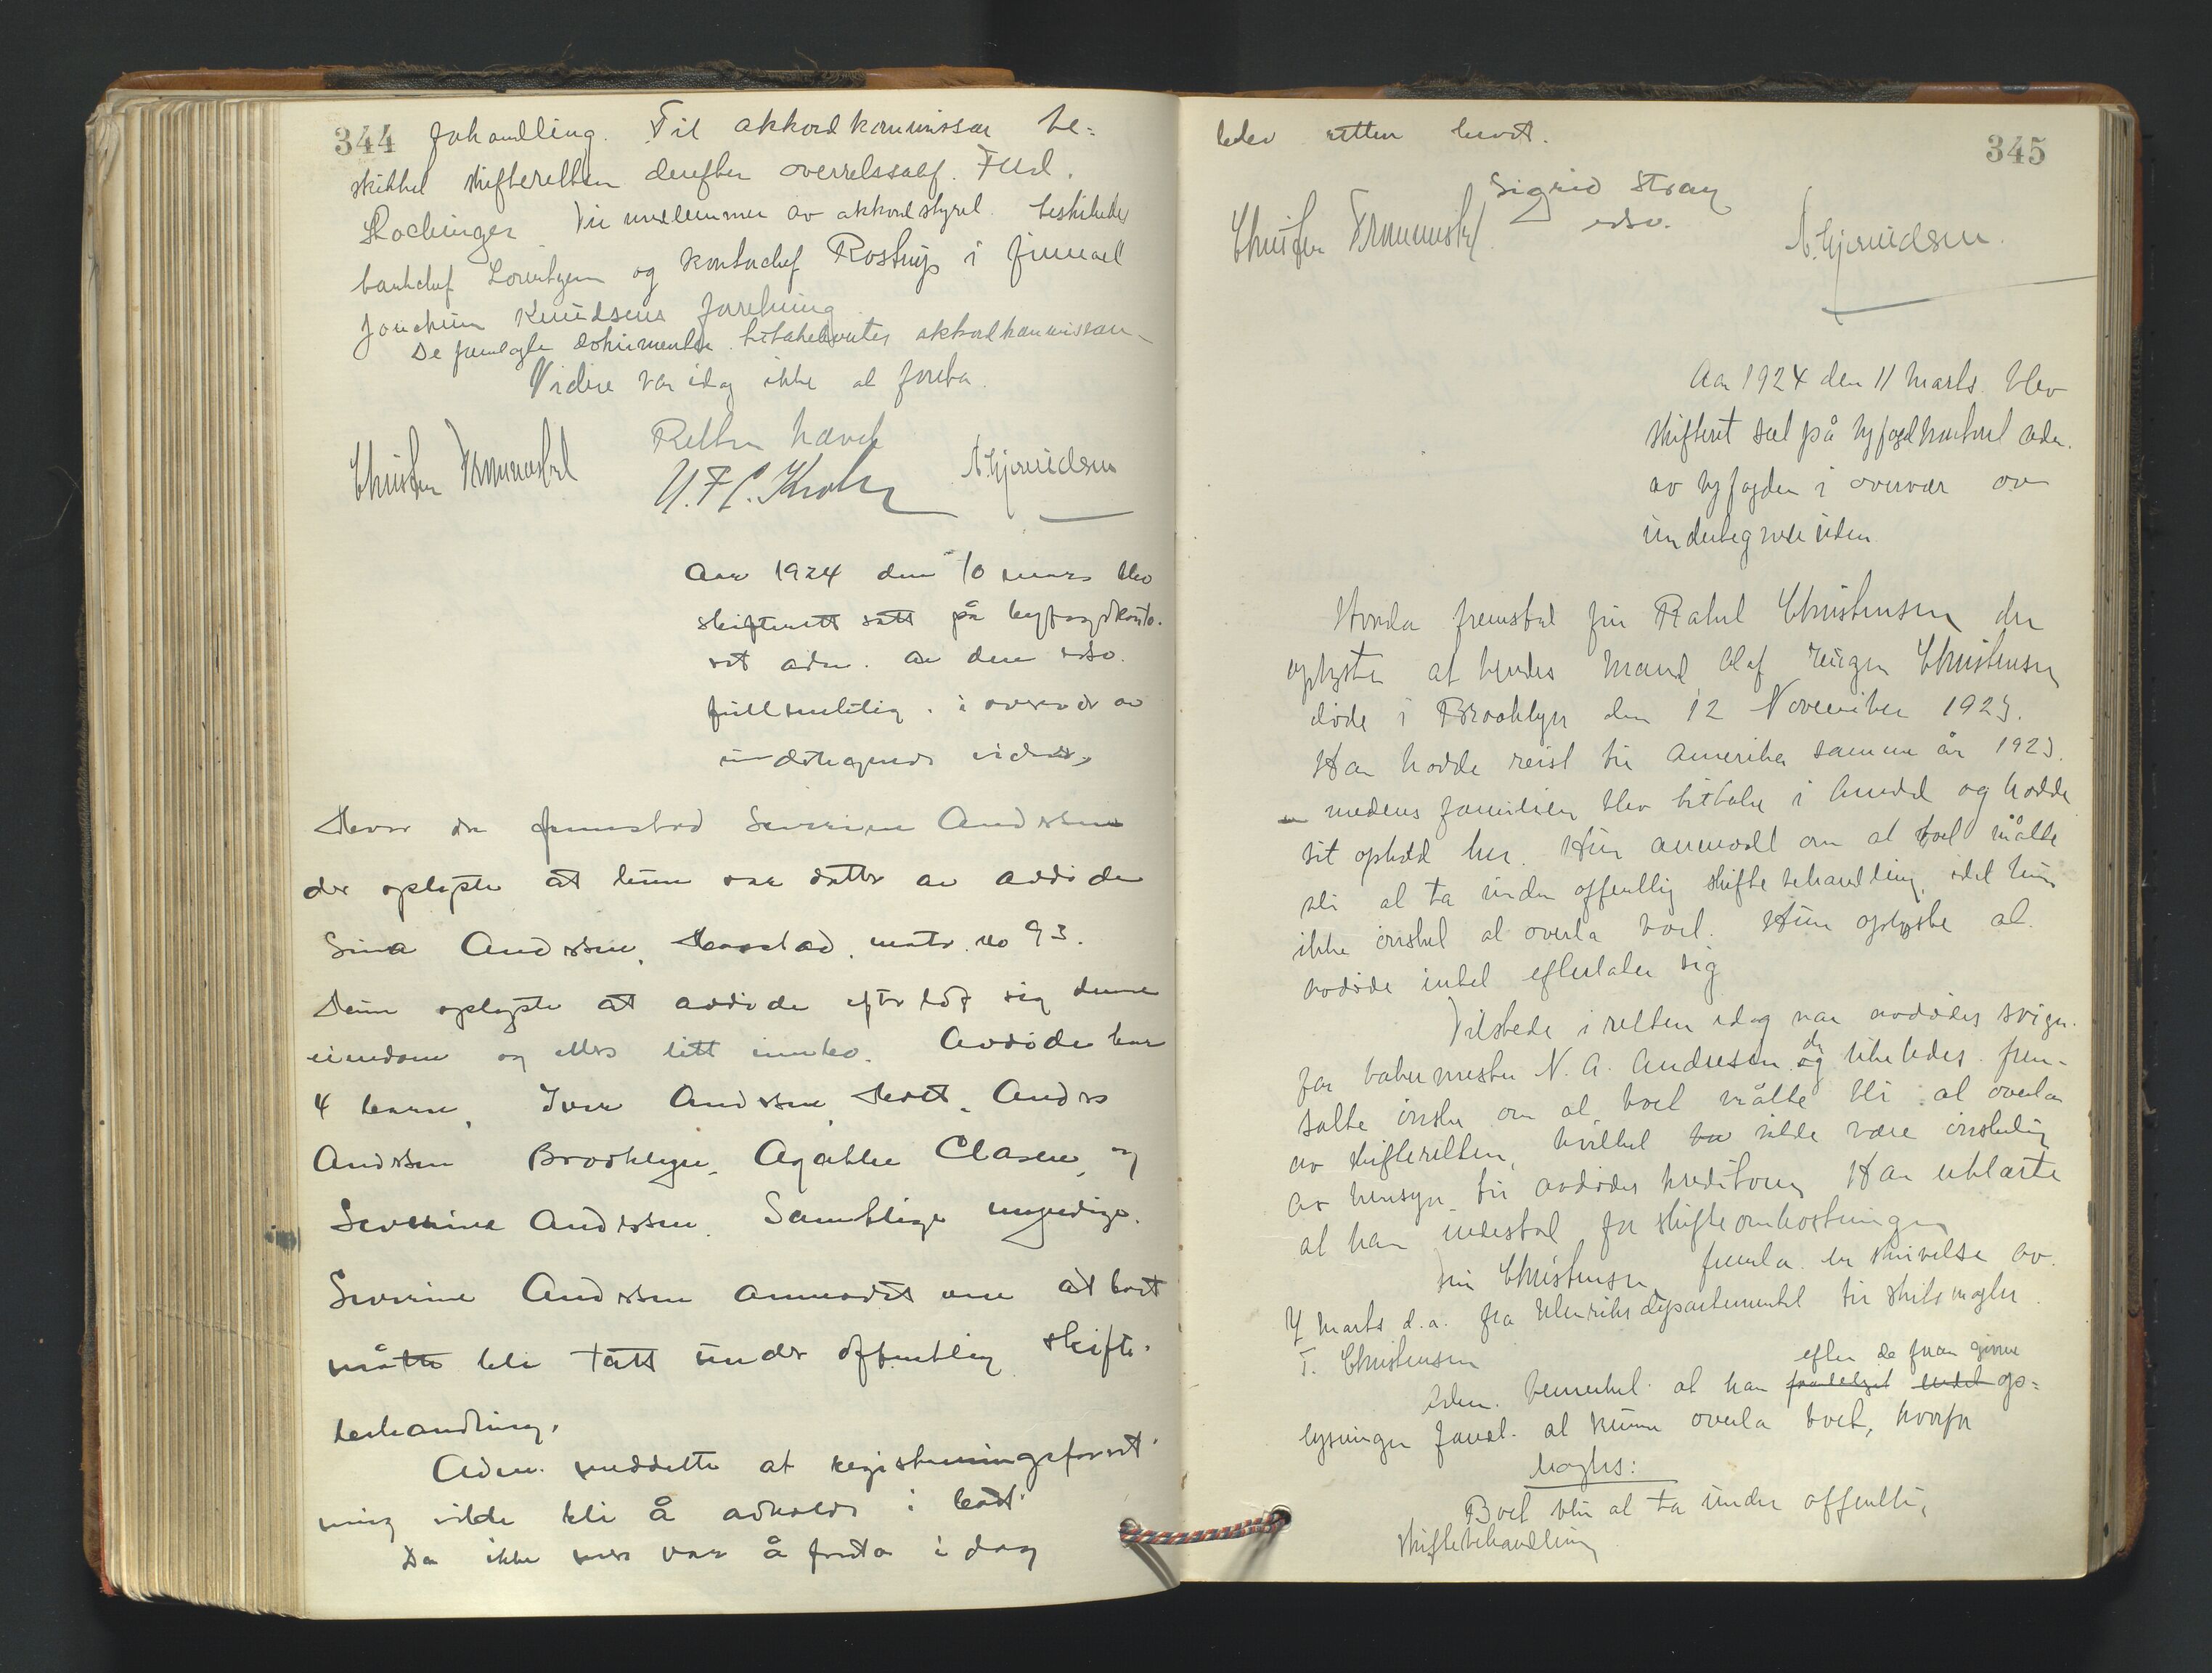 344 forhandling. Til akkordkommissær be=
skikket skifteretten derefter overretssakf. Ferd.
Rochinger. Til medlemmer av akkordstyret beskikkedes
bankchef Lorentzen og kontorchef Rostrup i firmaet
Jonchim Knudsens forretning
De fremlagte dokumenter tilbakeleveres akkordkommissæren
Videre var idag ikke at foreta.
Retten hævet
Christen
Aar 1924 den 10 mars blev
skifterett satt på byfogdkonto-
ret adm. av den edsv.
fullmektig i overvær av
undertegnede vidner,
Hvor da fremstod Severine Anderssen
der oplyste at hun var datter av avdøde
Sina Anderssen, matr. no 93.
Hun oplyste at avdøde efterlot sig denne
eiendom og ellers litt innbo. Avdøde har
4 barn, Iver Anderssen, Anders
Anderssen Brooklyn, Agathe Clasen, og
Severine Anderssen. Samtlige myndige.
Severine Anderssen anmodet om at boet
måtte bli tatt under offentlig skifte-
behandling.
Adm. meddelte at registreringsforret-
ning vilde bli å avholde i boet.
Da ikke mer var å foreta idag
blev retten hevet. 345
Sigrid Stray
edsv.
Christen
Aar 1924 den 11 Marts blev
skifteret sat på byfogdkontoret adm.
av byfogden i overvær av
undertegnede vidner.
Hvorda fremstod fru Rakel Christensen der
oplyste at hendes mand Olaf Jürgen Christensen
døde i Brooklyn den 12 November 1923.
Han hadde reist til Amerika samme år 1923.
medens familien blev tilbake i Arendal og hadde
sit ophold her. Hun anmodet om at boet måtte
bli at ta under offentlig skiftebehandling, idet hun
ikke ønsket at overta boet. Hun oplyste at
avdøde intet efterlater sig
Tilstede i retten idag var avdødes sviger-
far bakermester N. A. Andresen der likeledes frem-
satte ønske om at boet måtte bli at overta
av skifteretten, hvilket vilde være ønskelig
av hensyn til avdødes kreditorer. Han erklærte
at han indestod for skifteomkostninger
Fru Christensen fremla en skrivelse av
4 Marts d.a. fra Utenriksdepartementet til skibsmægler
T. Christensen
Adm. bemerket at han efter de foran givne op=
lysninger fandt at kunne overta boet, hvorfor
blev:
Boet blir at ta under offentlig
skiftebehandling